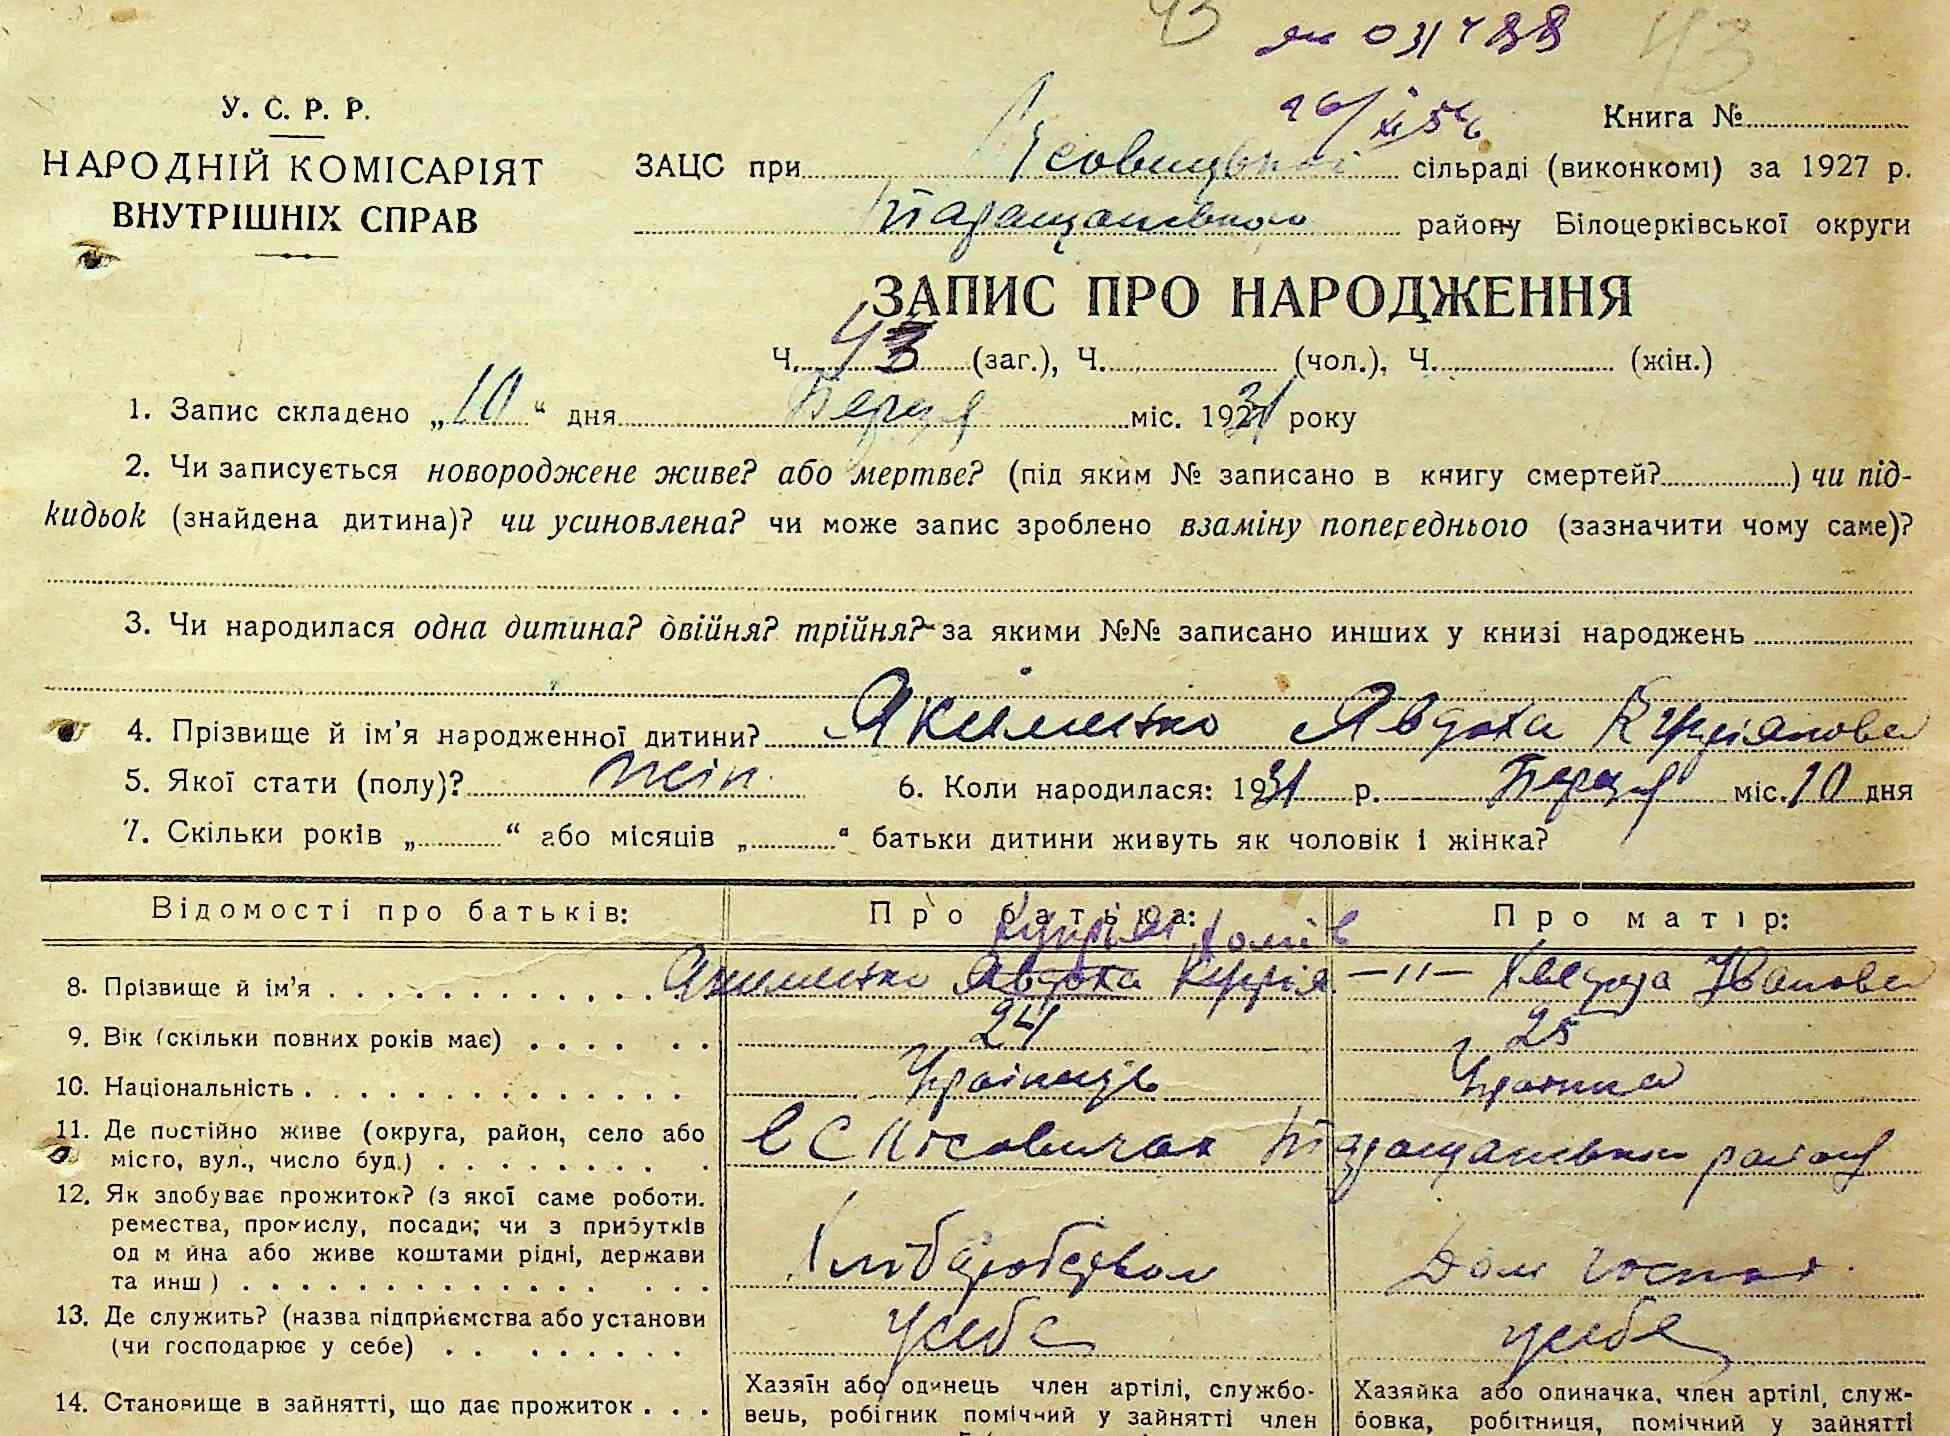 43
ян 031488
43
26/XI 54
У. С. Р. Р.
НАРОДНІЙ КОМІСАРІЯТ
ВНУТРІШНІХ СПРАВ
Книга №
ЗАЦС при сільраді (виконкомі) за 1927 р.
Таращанського району Білоцерківської округи
ЗАПИС ПРО НАРОДЖЕННЯ
Ч. 43 (заг.), Ч. (чол.), Ч. (жін.)
1. Запис складено „10“ дня Березня міс. 1931 року
2. Чи записується новороджене живе? або мертве? (під яким № записано в книгу смертей? ) чи під-
кидьок (знайдена дитина)? чи усиновлена? чи може запис зроблено взаміну попереднього (зазначити чому саме)?
3. Чи народилася одна дитина? двійня? трійня? за якими №№ записано инших у книзі народжень
4. Прізвище й ім'я народженної дитини? Якименко Явдоха Купріянова
5. Якої стати (полу)? жін. 6. Коли народилася: 1931 р. Березня міс. 10 дня
7. Скільки років „ “ або місяців „ “ батьки дитини живуть як чоловік і жінка?
Відомості про батьків: Про батька: Про матір:
Купріян Хомів
8. Прізвище й ім'я Якименко Явдоха Купрія —"— Іванова
9. Вік (скільки повних років має) 24 25
10. Національність Українець Українка
11. Де постійно живе (округа, район, село або
місто, вул., число буд.) в С Лісовичах Таращанського району
12. Як здобуває прожиток? (з якої саме роботи.
ремества, промислу, посади; чи з прибутків
од м йна або живе коштами рідні, держави
та инш) Хліборобством Дом госпол.
13. Де служить? (назва підприємства або установи
(чи господарює у себе) у себе у себе
14. Становище в зайнятті, що дає прожиток
Хазяїн або одинець член артілі, службо-
вець, робітник помічний у зайнятті член
Хазяйка або одиначка, член артілі, служ-
бовка, робітниця, помічний у зайнятті